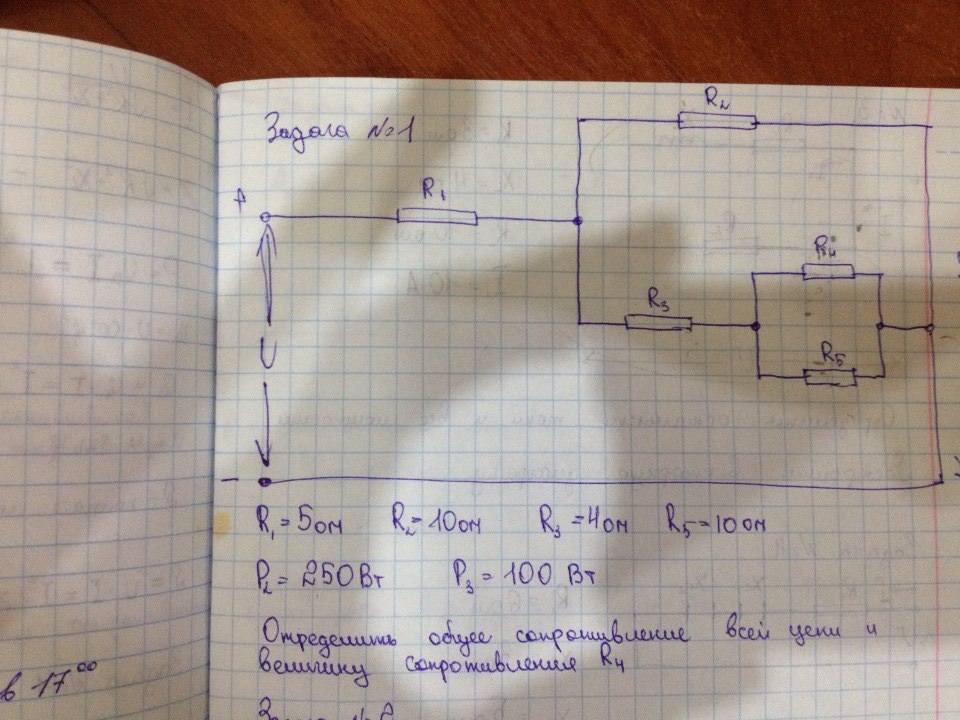 Задача №1
R₂
R₁
+
R₄
R₃
U
R₅
–
R₁=5ом R₂=10ом R₃=4ом R₅=10ом
P₂=250Вт P₃=100 Вт
Определить общее сопротивление всей цепи и
величину сопротивления R₄
в 17⁰⁰